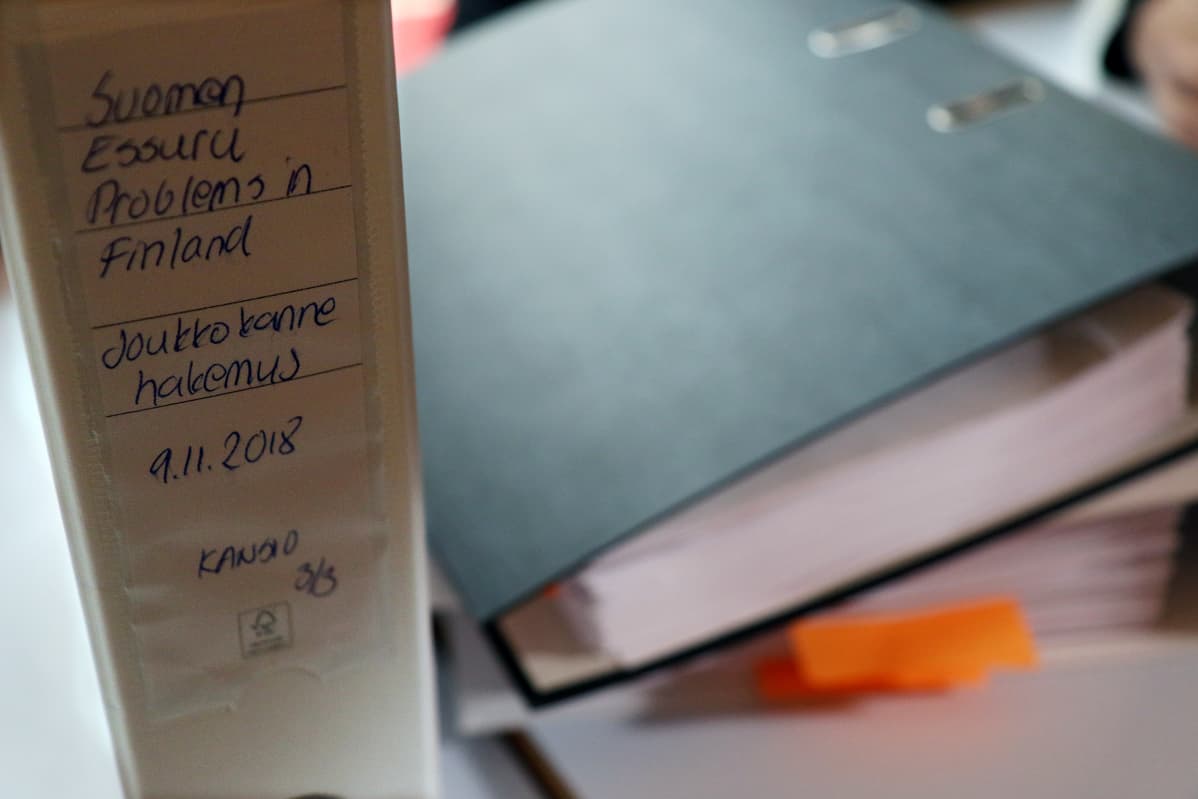 Suomen
Essuru
Problems in
Finland
Joukkokanne
hakemus
9.11.2018
KANSIO
3/3